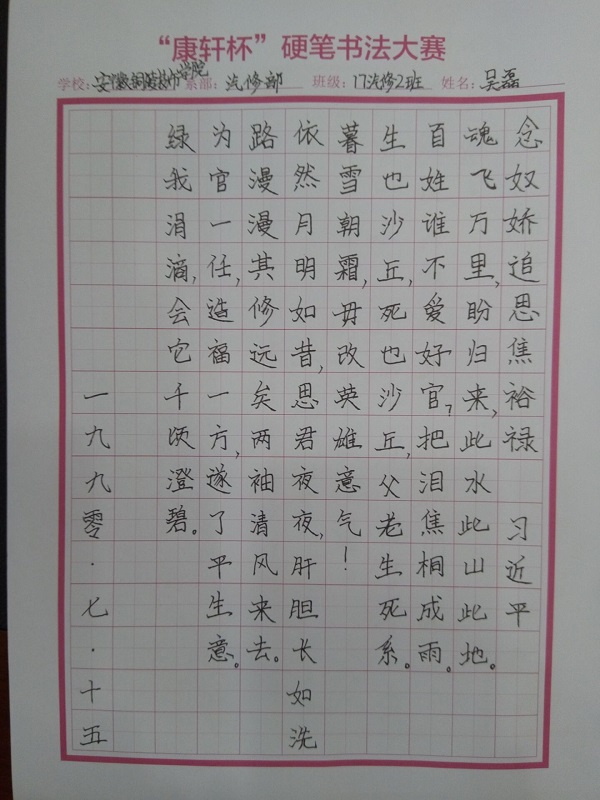 “康轩杯”硬笔书法大赛
学校：安徽 学院 系部：汽修部 班级：17汽修2班 姓名：吴磊
念奴娇追思焦裕禄 习近平
魂飞万里，盼归来，此水此山此地。
百姓谁不爱好官？把泪焦桐成雨。
生也沙丘，死也沙丘，父老生死系。
暮雪朝霜，毋改英雄意气！
依然月明如昔，思君夜夜，肝胆长如洗
路漫漫其修远矣，两袖清风来去。
为官一任，造福一方，遂了平生意。
绿我涓滴，会它千顷澄碧。
一九九零．七．十五